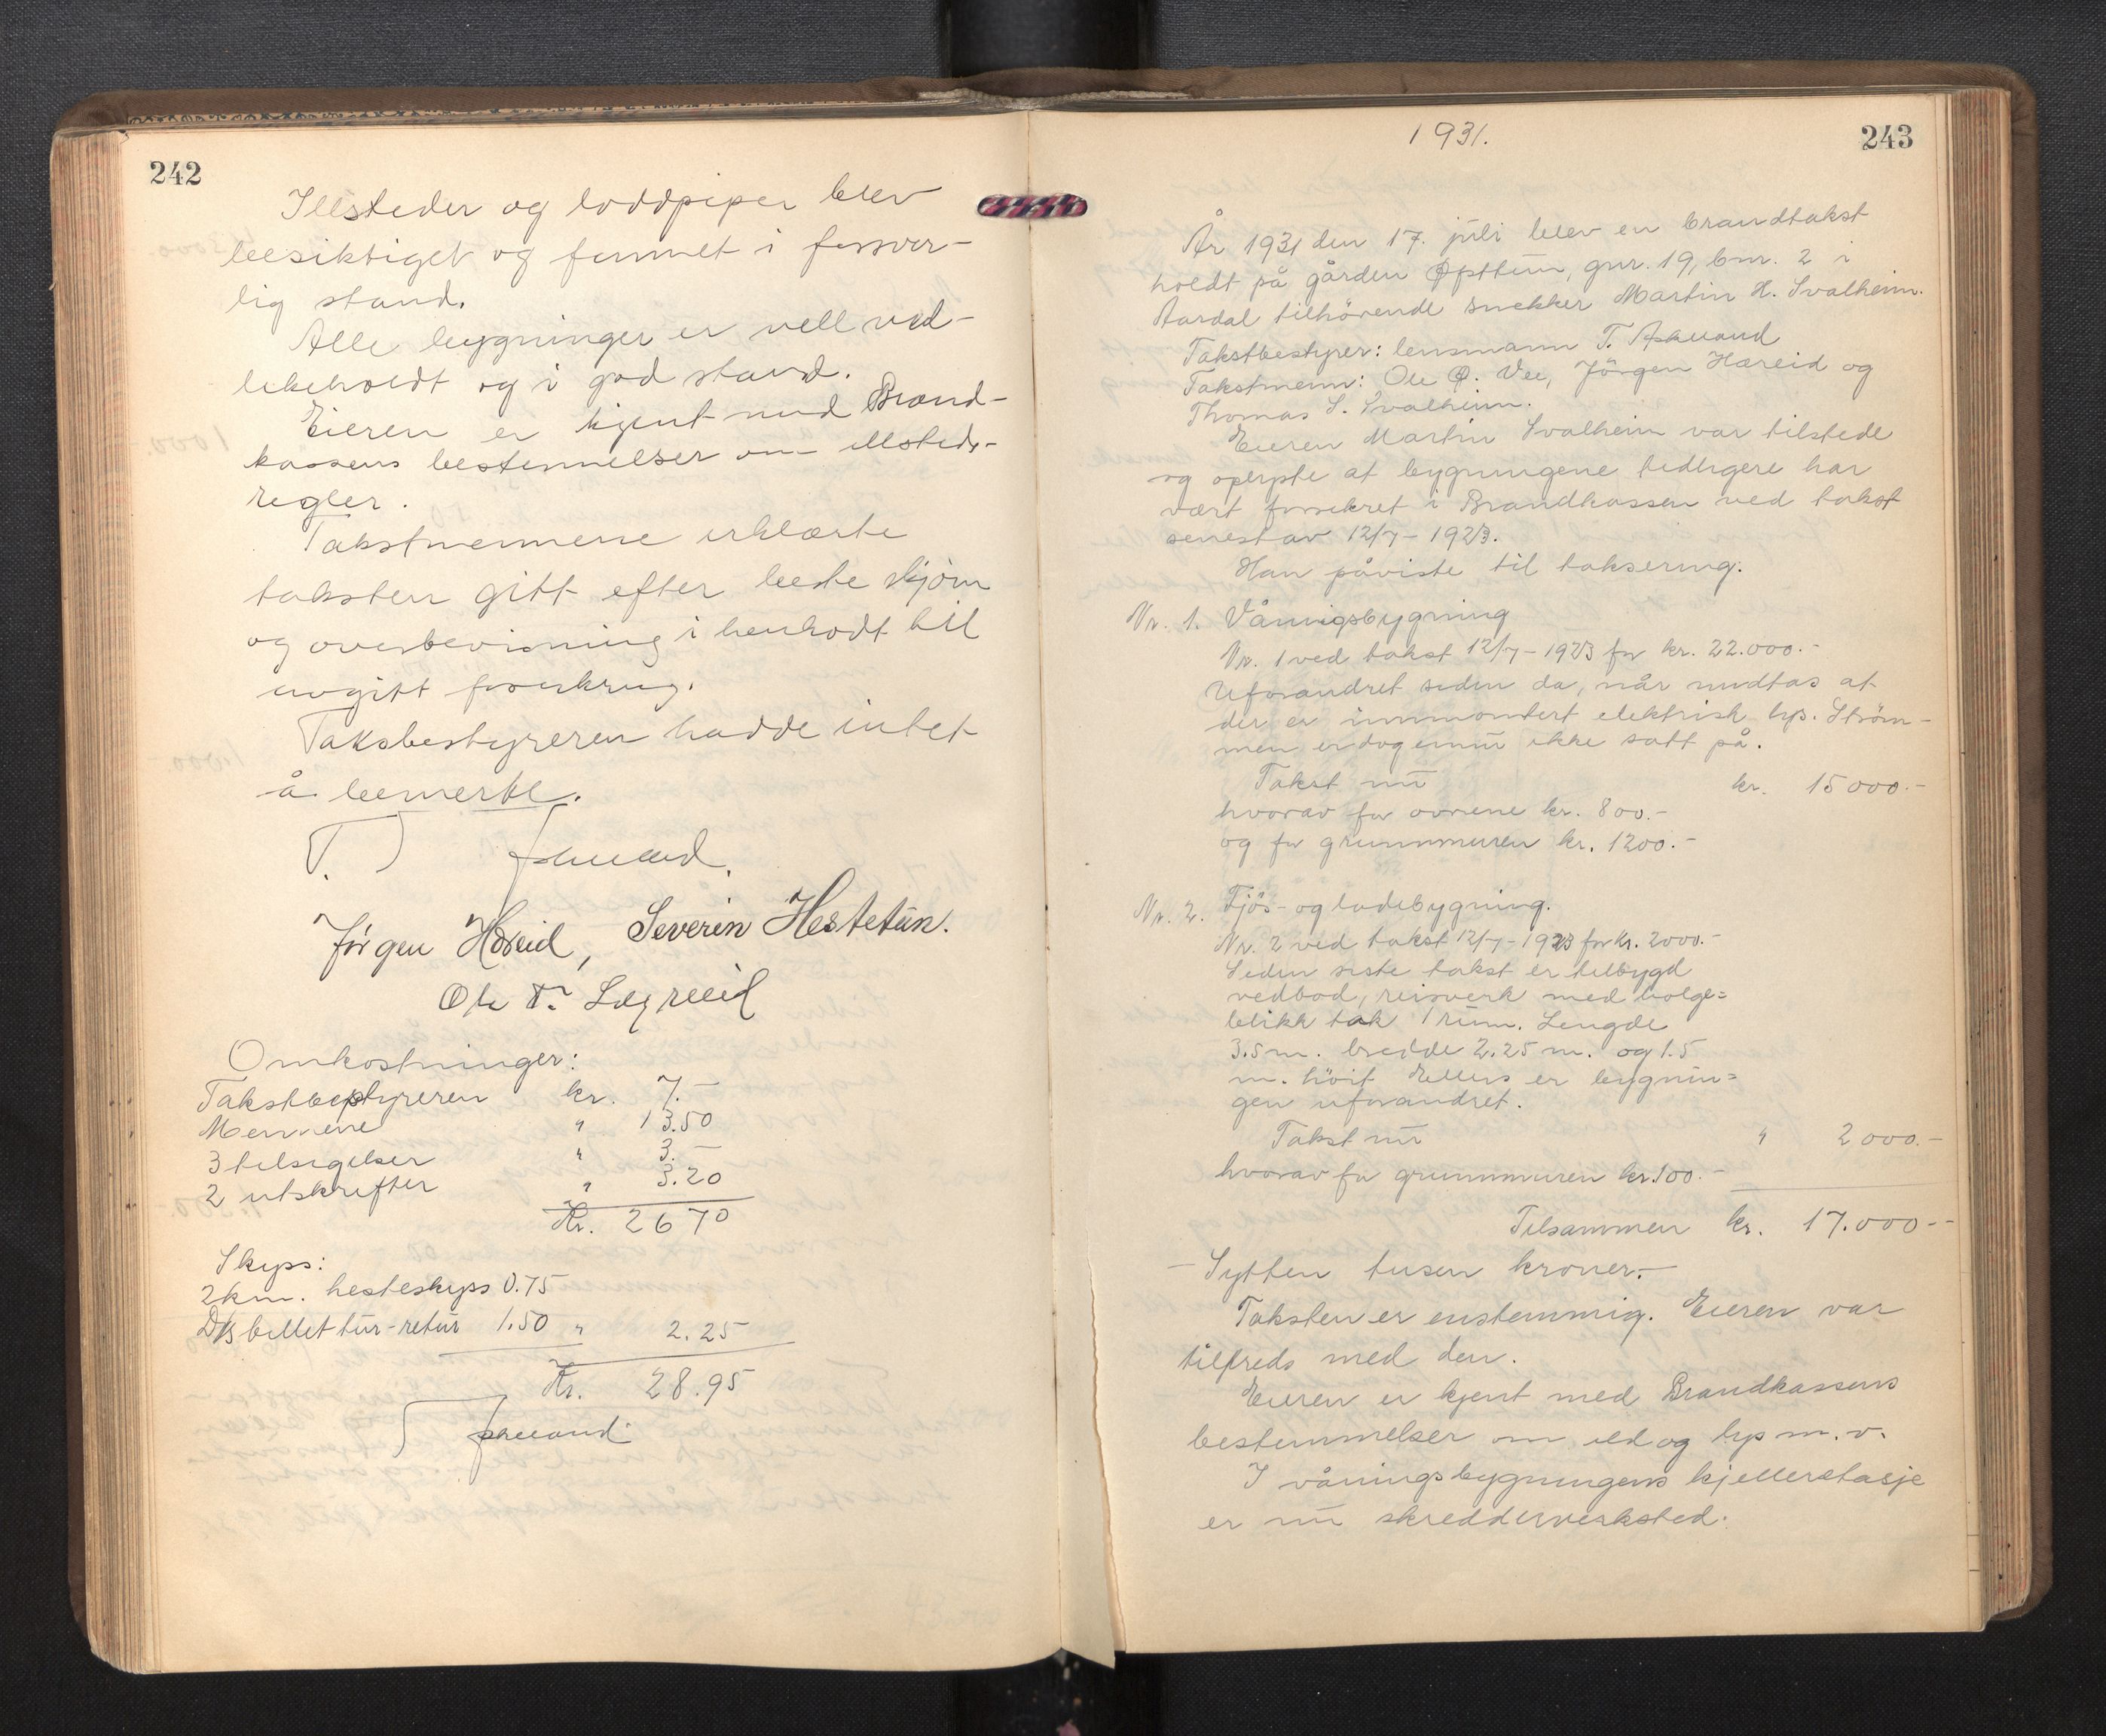 242
Illsteder og loddpiper blev
besiktiget og funnet i forsvar-
lig stand.
Alle bygninger er vell ved-
likeholdt og i god stand.
Eieren er kjent med Brand-
kassens bestemmelser om illsteds-
regler.
Takstmennene erklærte
taksten gitt efter beste skjönn
og overbevisning i henhodt til
avgitt forsikring.
Taksbestyreren hadde intet
å bemerke.
T.
Jørgen Hæreid, Severin Hestetun.
Ole T. Lægreid
Omkostninger:
Takstbestyreren kr. 7.-
Mennene " 13.50
3 tilsigelser " 3.-
2 utskrifter " 3.20
Kr. 26 70
Skyss:
2 km. hesteskyss 0.75
D/S billet tur-retur 1.50 " 2.25
Kr. 28.95
1931.
243
År 1931 den 17. juli blev en brandtakst
holdt på gården Øfsttun, gnr. 19, bnr. 2 i
Aardal tilhörende snekker Martin H. Svalheim.
Takstbestyrer: lensmann T.
Takstmenn: Ole Ø. Vee, Jörgen Hæreid og
Thomas S. Svalheim.
Eieren Martin Svalheim var tilstede
og oplyste at bygningene tidligere har
vært forsikret i Brandkassen ved takst
senest av 12/7-1923.
Han påviste til taksering.
Nr. 1. Våningsbygning
Nr. 1 ved takst 12/7-1923 for kr. 22.000.-
Uforandret siden da, når undtas at
der er innmontert elektrisk lys. Ström-
men er dog ennu ikke satt på.
Takst nu kr. 15000.-
hvorav for ovnene kr. 800.-
og for grunnmuren kr. 1200.-
Nr. 2. Fjös- og ladebygning.
Nr. 2 ved takst 12/7-1923 for kr. 2000.-
Siden siste takst er tilbygd
vedbod, reisverk med bolge=
blikk tak 1 rum. Lengde
3.5 m. bredde 2.25 m. og 1.5
m. höit Ellers er bygnin=
gen uforandret.
Takst nu " 2000.-
hvorav for grunnmuren kr. 100.-
Tilsammen kr. 17.000--
- Sytten tusen kroner.-
Taksten er enstemmig. Eieren var
tilfreds med den.
Eieren er kjent med Brandkassens
bestemmelser om ild og lys m.v.
I våningsbygningens kjelleretasje
er nu skredderverksted.